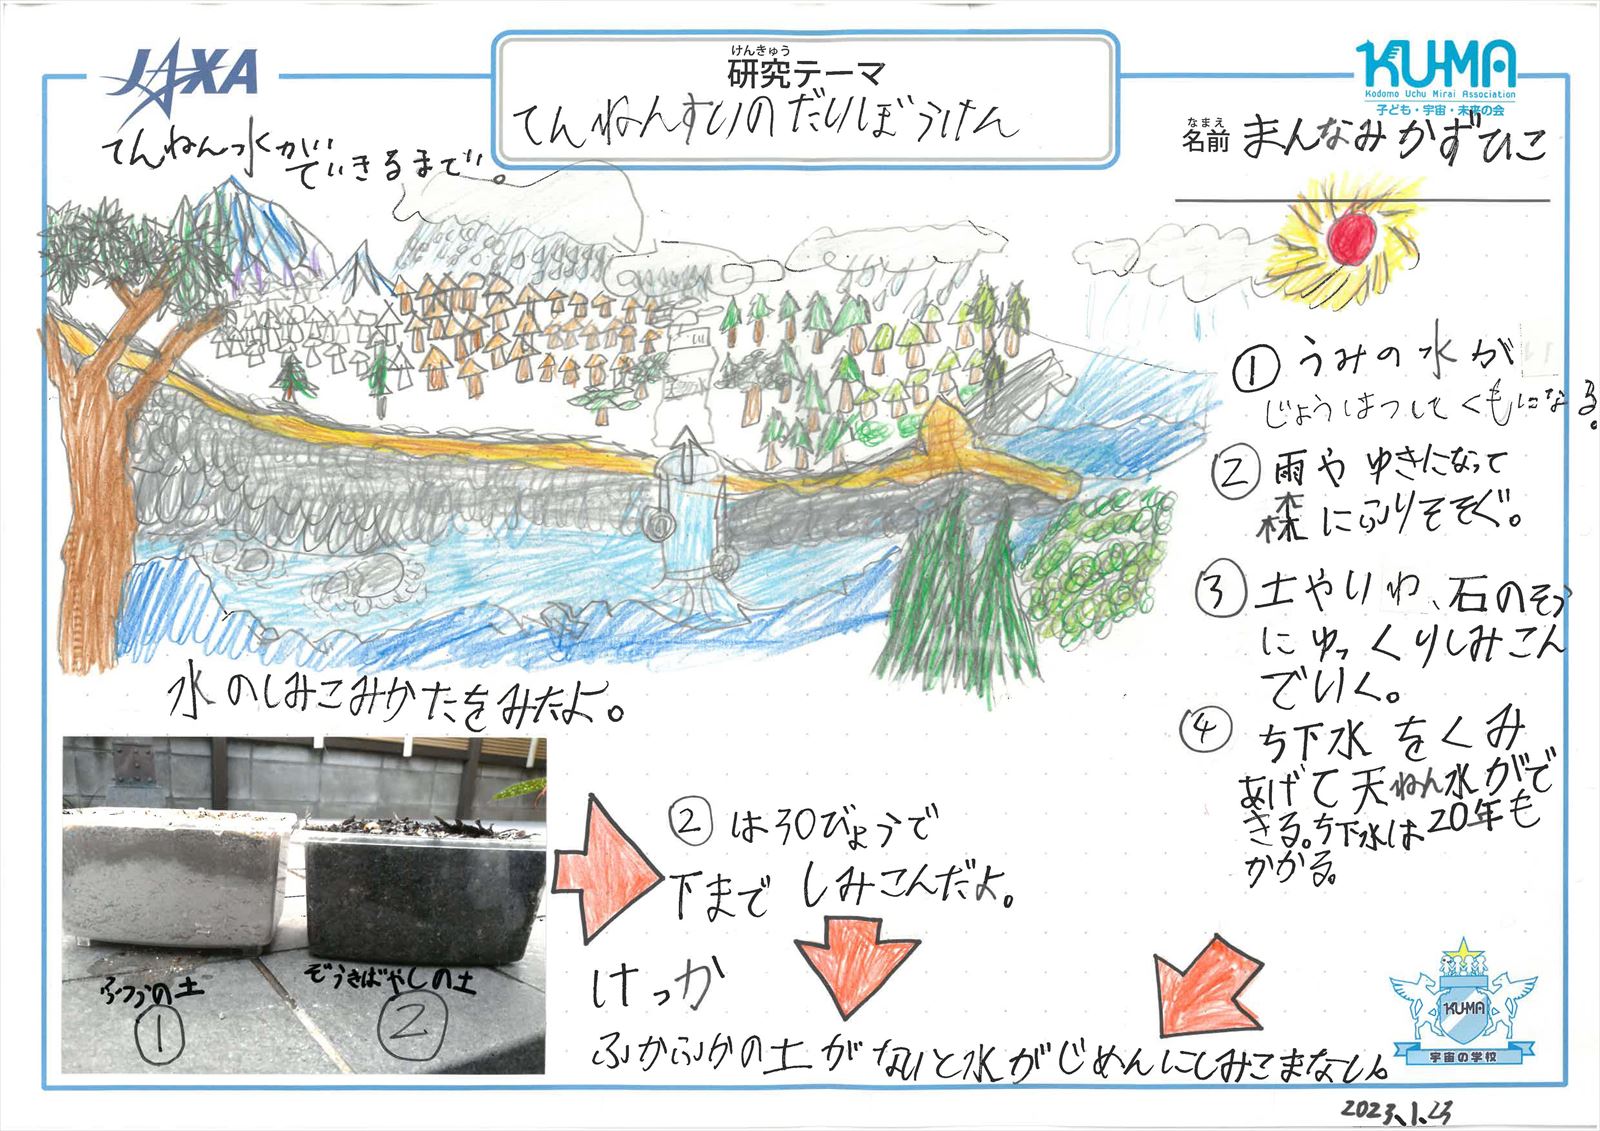 JAXA
けんきゅう
研究テーマ
てんねんすいのだいぼうけん
KU-MA
Kodomo Uchu Mirai Association
子ども・宇宙・未来の会
なまえ
名前 まんなみかずひこ
てんねん水が
できるまで。
① うみの水が
じょうはつしてくもになる。
② 雨やゆきになって
森にふりそそぐ。
③ 土やいわ、石のそう
にゆっくりしみこん
でいく。
④ ち下水をくみ
あげて天ねん水がで
きる。ち下水は20年も
かかる。
水のしみこみかたをみたよ。
ふつうの土
①
ぞうきばやしの土
②
②は30びょうで
下まで しみこんだよ。
けっか
ふかふかの土がないと水がじめんにしみこまない。
KU-MA
宇宙の学校
2023.1.23